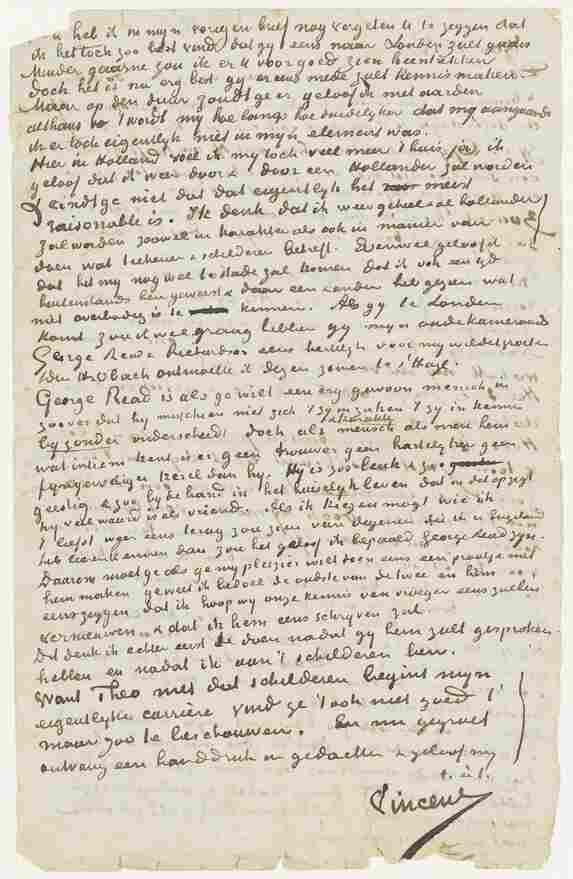 u heb ik in mijn vorigen brief nog vergeten te te zeggen dat
ik het toch zoo best vind dat gy eens naar Londen zult gaan
Minder gaarne zou ik er U voor goed zien heentrekken
doch het is nu erg best gy er eens mede zult kennis maken.
Maar op den duur zoudt ge er geloof ik niet aarden
althans zo 't wordt my hoe langs hoe duidelyker dat my aangaande
ik er toch eigentlyk niet in myn element was.
Hier in Holland voel ik my toch veel meer t'huis, ja, ik
geloof dat ik weer door & door een Hollander zal worden
& vindt ge niet dat dat eigentlyk het meest
raisonable is. Ik denk dat ik weer geheel & al hollander
zal worden zoowel in karakter als ook in manier van
doen wat teekenen & schilderen betreft. Evenwel geloof ik
dat het my nog wel te stade zal komen dat ik ook een tyd
buitenslands ben geweest & daar een & ander heb gezien wat
niet overbodig is te kennen. Als gy te Londen
komt zou ik wel graag hebben gy myn oude kameraads
George Read & Richardson eens hartelyk voor my wildet groeten
ontmoette ik dezen zomer te s'Hage.
George Read is als ge wilt een erg gewoon mensch, in
zoover dat hy misschien niet zich 't zy in zaken 't zy in kennis
byzonder onderscheidt doch als mensch als men hem
wat intiem kent is er geen trouwer geen hartelyker geen
fyngevoeliger kerel dan hy. Hy is zoo leuk & zoo
geestig & zoo by de hand in het huiselyk leven dat in dat opzigt
hy veel waard is als vriend. Als ik kiezen mogt wie ik
't liefst weer eens terug zou zien van degenen die ik in Engeland
heb leeren kennen dan zou het geloof ik bepaald George Read zyn.
Daarom moet ge als ge my plezier wilt doen eens een praatje met
hem maken ge weet ik bedoel de oudste van de twee en hem
eens zeggen dat ik hoop wy onze kennis van vroeger eens zullen
vernieuwen & dat ik hem eens schryven zal.
Dit denk ik echter eerst te doen nadat gy hem zult gesproken
hebben en nadat ik aan 't schilderen ben.
Want Theo met dat schilderen begint myn
eigentlyke carrière vind ge 't ook niet goed 't
maar zoo te beschouwen. En nu gegroet
ontvang een handdruk in gedachten & geloof my
t. à t.
Vincent